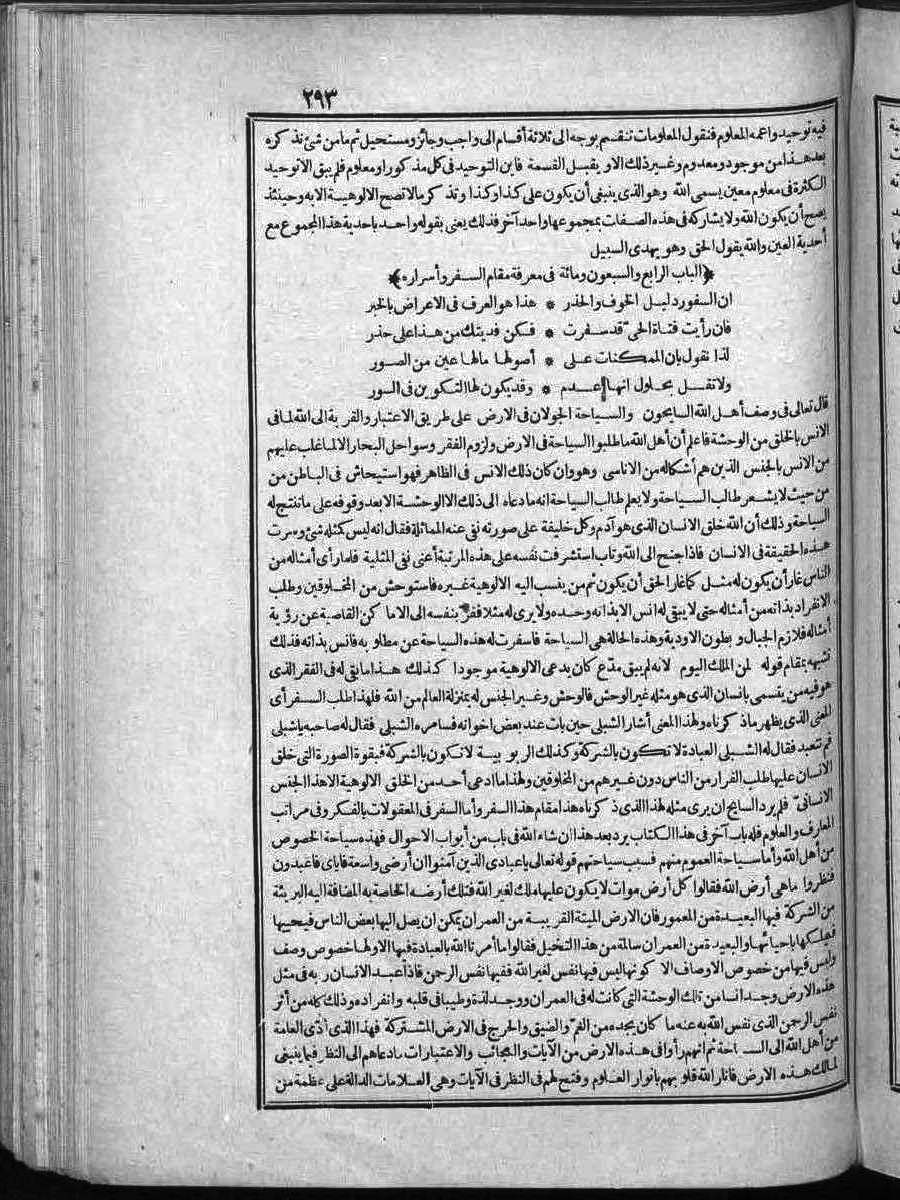 ٢٩٣
فيه توحيد وأعمه المعلوم فنقول المعلومات تنقسم بوجه الى ثلاثة أقسام الى واجب وجائز ومستحيل ثم ما من شئ نذكره
بعد هذا من موجود ومعدوم وغير ذلك الا ويقبل القسمة فاين التوحيد فى كل مذكور أو معلوم فلم يبق الا توحيد
الكثرة فى معلوم معين يسمى الله وهو الذى ينبغى أن يكون على كذا وكذا وتذكر ما لا تصح الالوهية الا به وحينئذ
يصح أن يكون الله ولا يشاركه فى هذه الصفات بمجموعها واحد آخر فذلك يعنى بقوله واحد باحدية هذا المجموع مع
أحدية العين والله يقول الحق وهو يهدى السبيل
﴿الباب الرابع والسبعون ومائة فى معرفة مقام السفر وأسراره﴾
ان السفور دليل الخوف والحذر * هذا هو العرف فى الاعراض بالخبر
فان رأيت فتاة الحى قد سفرت * فكن فديتك من هذا على حذر
لذا نقول بان الممكنات على * أصولها ما لها عين من الصور
ولا تقل بحلول انها عدم * وقد يكون لها التكوين فى السور
قال تعالى فى وصف أهل الله السايحون والسياحة الجولان فى الارض على طريق الاعتبار والقربة الى الله لما فى
الانس بالخلق من الوحشة فاعلم أن أهل الله ما طلبوا السياحة فى الارض ولزوم القفر وسواحل البحار الا لما غلب عليهم
من الانس بالجنس الذين هم أشكاله من الاناسى وهو وان كان ذلك الانس فى الظاهر فهو استيحاش فى الباطن من
من حيث لا يشعر طالب السياحة ولا يعلم طالب السياحة انه ما دعاه الى ذلك الا الوحشة الا بعد وقوفه على ما تنتج له
السياحة وذلك أن الله خلق الانسان الذى هو آدم وكل خليفة على صورته نفى عنه المماثلة فقال انه ليس كمثله شئ وسرت
هذه الحقيقة فى الانسان فاذا جنح الى الله وتاب استشرفت نفسه على هذه المرتبة أعنى نفى المثلية فلما رأى أمثاله من
الناس غار أن يكون له مثل كما غار الحق أن يكون ثم من ينسب اليه الالوهية غيره فاستوحش من المخلوقين وطلب
الانفراد بذاته من أمثاله حتى لا يبقى له انس الا بذاته وحده ولا يرى له مثلا ففر بنفسه الى الاماكن القاصية عن رؤية
أمثاله فلازم الجبال وبطون الاودية وهذه الحالة هى السياحة فاسفرت له هذه السياحة عن مطلوبه فانس بذاته فذلك
تشبهه بمقام قوله لمن الملك اليوم لانه لم يبق مدّع كان يدعى الالوهية موجودا كذلك هذا ما بقى له فى القفر الذى
هو فيه من يتسمى بانسان الذى هو مثله غير الوحش فالوحش وغير الجنس له بمنزلة العالم من الله فلهذا طلب السفر أى
المعنى الذى يظهر ما ذكرناه ولهذا المعنى أشار الشبلى حين بات عند بعض اخوانه فسامره الشبلى فقال له صاحبه يا شبلى
قم نتعبد فقال له الشبلى العبادة لا تكون بالشركة وكذلك الربوبية لا تكون بالشركة فبقوة الصورة التى خلق
الانسان عليها طلب الفرار من الناس دون غيرهم من المخلوقين ولهذا ما ادعى أحد من الخلق الالوهية الا هذا الجنس
الانسانى فلم يرد السايح ان يرى مثله لهذا الذى ذكرناه هذا مقام هذا السفر وأما السفر فى المعقولات بالفكر وفى مراتب
المعارف والعلوم فله باب آخر فى هذا الكتاب يرد بعد هذا ان شاء الله فى باب من أبواب الاحوال فهذه سياحة الخصوص
من أهل الله وأما سياحة العموم منهم فسبب سياحتهم قوله تعالى يا عبادى الذين آمنوا ان أرضى واسعة فاياى فاعبدون
فنظروا ما هى أرض الله فقالوا كل أرض موات لا يكون عليها ملك لغير الله فتلك أرضه الخاصة به المضافة اليه البريئة
من الشركة فيها البعيدة من المعمور فان الارض الميتة القريبة من العمران يمكن ان يصل اليها بعض الناس فيحييها
فيملكها باحيائها والبعيدة من العمران سالمة من هذا التخيل فقالوا ما أمرنا الله بالعبادة فيها الا ولها خصوص وصف
وليس فيها من خصوص الاوصاف الا كونها ليس فيها نفس لغير الله ففيها نفس الرحمن فاذا عبد الانسان ربه فى مثل
هذه الارض وجد انسا من تلك الوحشة التى كانت له فى العمران ووجد لذة وطيبا فى قلبه وانفراده وذلك كله من أثر
نفس الرحمن الذى نفس الله به عنه ما كان يجده من الغم والضيق والحرج فى الارض المشتركة فهذا الذى أدّى العامة
من أهل الله الى السياحة ثم انهم رأوا فى هذه الارض من الآيات والعجائب والاعتبارات ما دعاهم الى النظر فيما ينبغى
لمالك هذه الارض فانار الله قلوبهم بانوار العلوم وفتح لهم فى النظر فى الآيات وهى العلامات الدالة على عظمة من